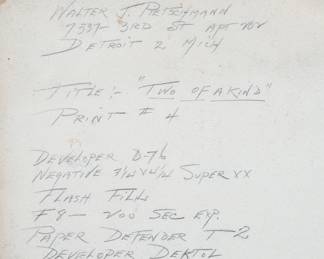 WALTER J. PIETSCHMANN
7337- 3RD ST APT 702
DETROIT 2 MICH
TITLE:- "TWO OF A KIND"
PRINT # 4
DEVELOPER D-76
NEGATIVE 3/4 X 4/4 SUPER XX
FLASH FILL
F8 - 200 SEC EXP.
PAPER DEFENDER T-2
DEVELOPER DEKTOL